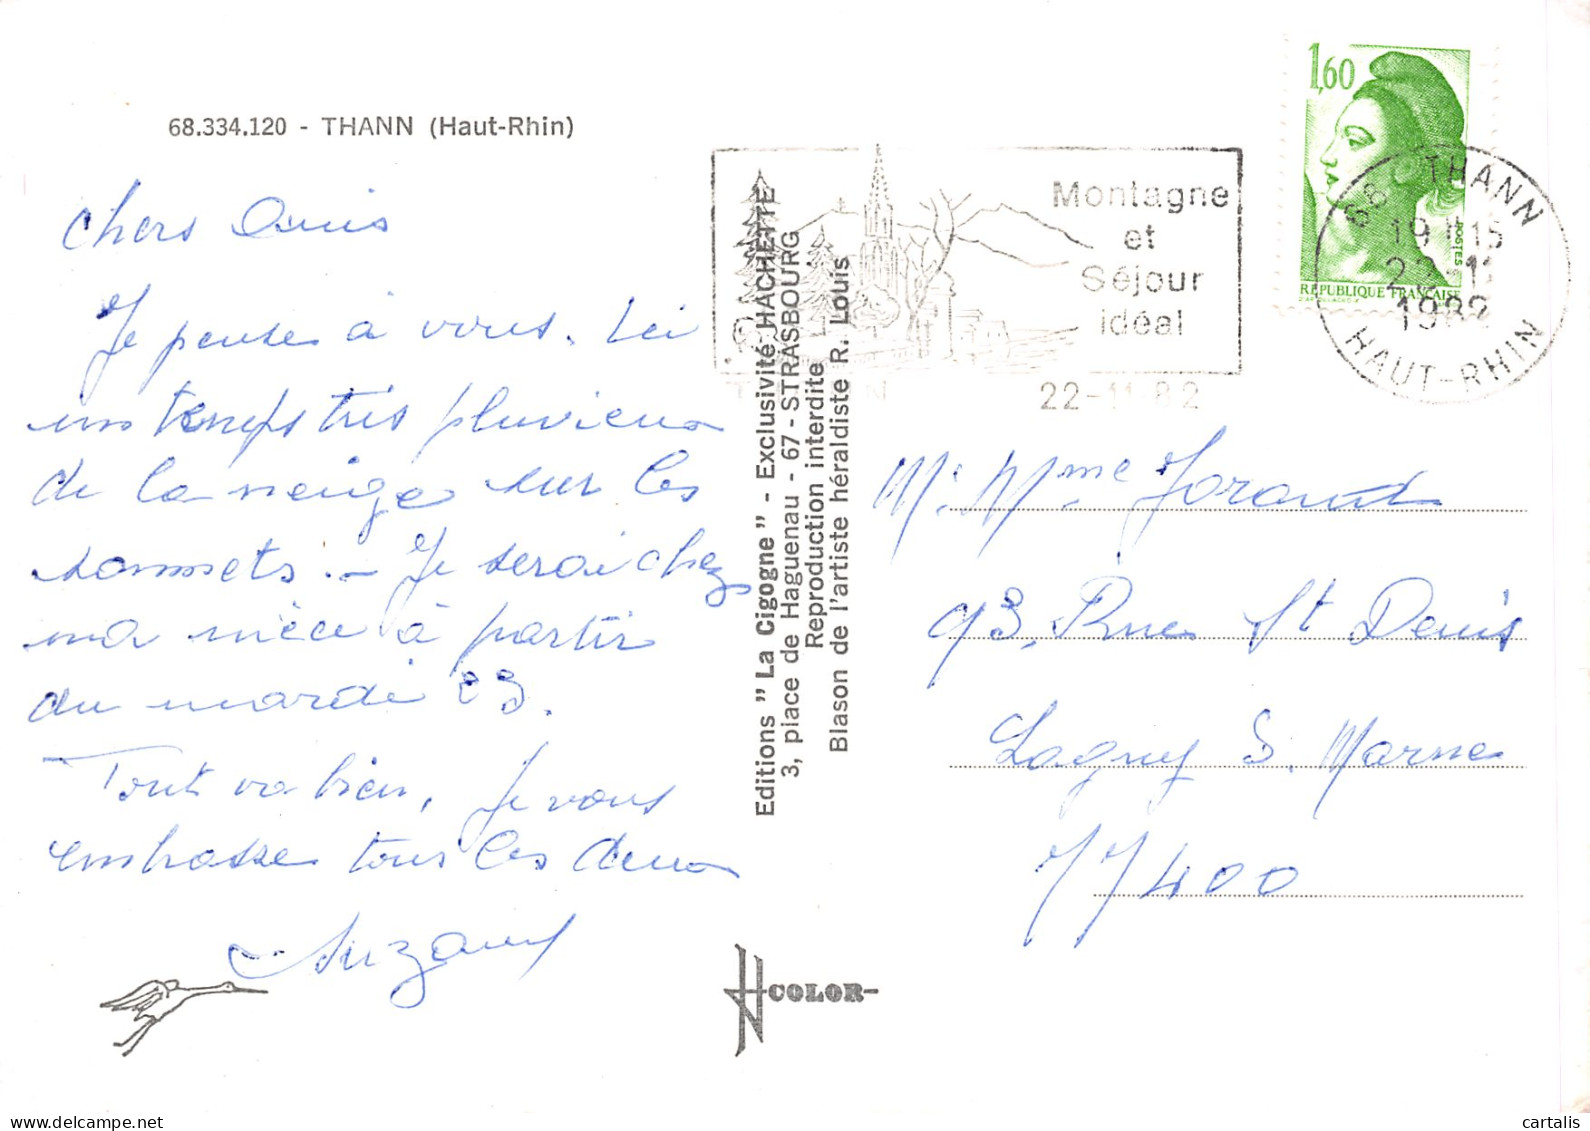 68.334.120 - THANN (Haut-Rhin)
Chers Amis
Je pense à vous. Ici
un temps très pluvieux
de la neige sur les
sommets. - Je serai chez
ma nièce à partir
du mardi 23.
Tout va bien, Je vous
embrasse tous les deux
Suzanne
Editions "La Cigogne" - Exclusivité HACHETTE
3, place de Haguenau - 67 - STRASBOURG
Reproduction interdite
Blason de l'artiste héraldiste R. Louis
COLOR-
Montagne
et
Séjour
idéal
22-11-82
1,60
POSTES
REPUBLIQUE FRANÇAISE
68 THANN
19H15
22-11
1982
HAUT-RHIN
M. Mme
93, Rue St Denis
Lagny S. Marne
77400
cartalis